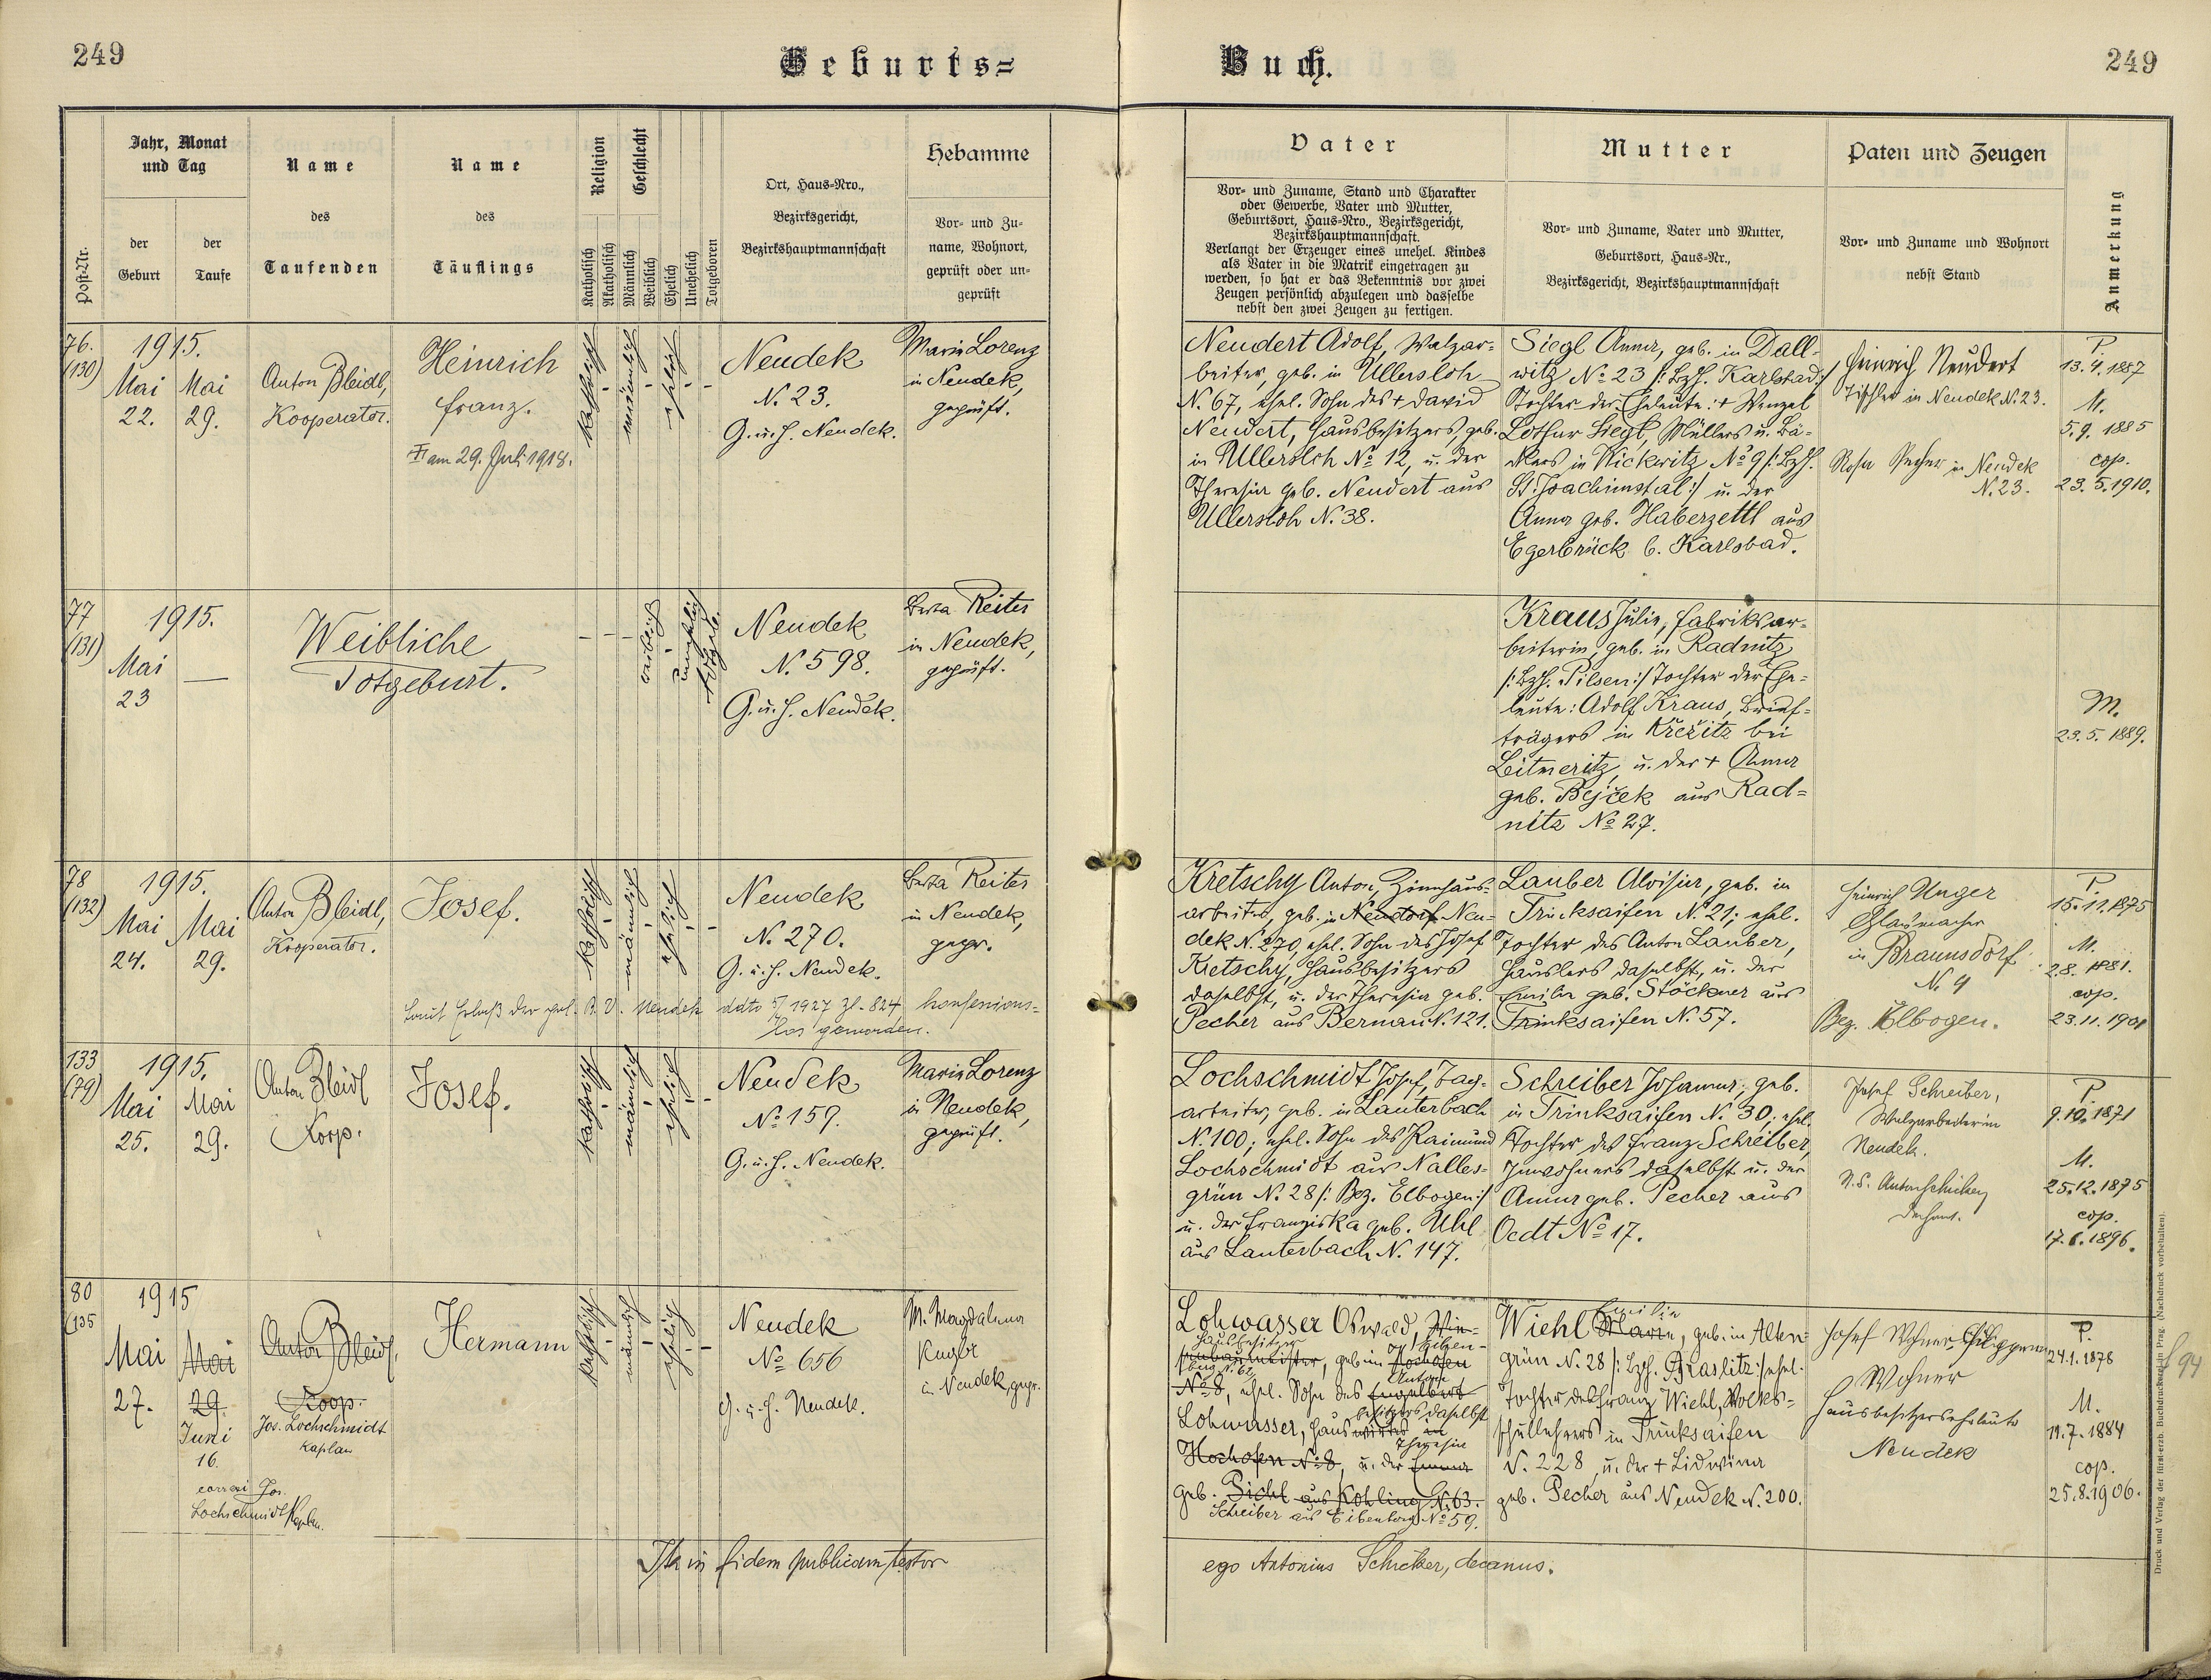 249
Geburts=
Buch.
249
Post-Nr.
Jahr, Monat
und Tag
der
Geburt
der
Taufe
Name
des
Taufenden
Name
des
Täuflings
Religion
Katholisch
Akatholisch
Geschlecht
Männlich
Weiblich
Ehelich
Unehelich
Totgeboren
Ort, Haus-Nro.,
Bezirksgericht,
Bezirkshauptmannschaft
Hebamme
Vor- und Zu-
name, Wohnort,
geprüft oder un-
geprüft
Vater
Vor- und Zuname, Stand und Charakter
oder Gewerbe, Vater und Mutter,
Geburtsort, Haus-Nro., Bezirksgericht,
Bezirkshauptmannschaft.
Verlangt der Erzeuger eines unehel. Kindes
als Vater in die Matrik eingetragen zu
werden, so hat er das Bekenntnis vor zwei
Zeugen persönlich abzulegen und dasselbe
nebst den zwei Zeugen zu fertigen.
Mutter
Vor- und Zuname, Vater und Mutter,
Geburtsort, Haus-Nr.,
Bezirksgericht, Bezirkshauptmannschaft
Paten und Zeugen
Vor- und Zuname und Wohnort
nebst Stand
Anmerkung
76.
(130)
1915.
Mai
22.
Mai
29.
Anton Bleidl,
Kooperator.
Heinrich
Franz.
am 29. Juli 1918.
katholisch
männlich
ehelich
Neudek
N. 23.
G. u. H. Neudek.
Marie Lorenz
in Neudek,
geprüft.
Neudert Adolf, Walzar-
beiter, geb. in Ullersloh
N. 67, ehel. Sohn des + David
Neudert, Hausbesitzers, geb.
in Ullersloh No 12, u. der
Theresia geb. Neudert aus
Ullersloh N. 38.
Siegl Anna, geb. in Dall-
witz No 23 /: Bzh. Karlsbad :/
Tochter der Eheleute: + Wenzel
Lothar Siegl, Müllers u. Bä-
ckers in Rickwitz No 9 /: Bzh.
St. Joachimstal :/ u. der
Anna geb. Haberzettl aus
Egerbrück b. Karlsbad.
Heinrich Neudert
Tischler in Neudek N. 23.
Rosa Pecher in Neudek
N. 23.
P.
13.4.1887
M.
5.9.1885
cop.
23.5.1910.
77
(131)
1915.
Mai
23
—
Weibliche
Totgeburt.
weiblich
unehelich
Neudek
N. 598.
G. u. H. Neudek.
Berta Reiter
in Neudek,
geprüft.
Kraus Julie, Fabriksar-
beiterin, geb. in Radnitz
/: Bzh. Pilsen :/ Tochter der Ehe-
leute: Adolf Kraus, Brief-
trägers in Křešitz bei
Leitmeritz, u. der + Anna
geb. Bejček aus Rad-
nitz No 27.
M.
23.5.1889.
78
(132)
1915.
Mai
24.
Mai
29.
Anton Bleidl,
Kooperator.
Josef.
katholisch
männlich
ehelich
Neudek
N. 270.
G. u. H. Neudek.
Berta Reiter
in Neudek,
gepr.
Laut Erlaß der pol. B. V. Neudek ddto 5/ 1927 Zl. 824, konfessions-
los geworden.
Kretschy Anton, Zinnhaus-
arbeiter, geb. in Neudorf Neu-
dek N. 270, ehel. Sohn des Josef
Kretschy, Hausbesitzers
daselbst, u. der Theresia geb.
Pecher aus Bernau N. 121.
Lauber Aloisia, geb. in
Trinksaifen N. 21; ehel.
Tochter des Anton Lauber,
Häuslers daselbst, u. der
Emilie geb. Stöckner aus
Trinksaifen N. 57.
Heinrich Unger
Glasmacher
in Braunsdorf
N. 9
Bez. Elbogen.
P.
15.11.1875
M.
2.8.1881.
cop.
23.11.1901
133
(79)
1915.
Mai
25.
Mai
29.
Anton Bleidl
Koop.
Josef.
katholisch
männlich
ehelich
Neudek
No 159.
G. u. H. Neudek.
Marie Lorenz
in Neudek,
geprüft.
Lochschmidt Josef, Tag-
arbeiter, geb. in Lauterbach
N. 100; ehel. Sohn des Raimund
Lochschmidt aus Nalles-
grün N. 28 /: Bez. Elbogen :/
u. der Franziska geb. Uhl
aus Lauterbach N. 147.
Schreiber Johanna, geb.
in Trinksaifen N. 30; ehel.
Tochter des Franz Schreiber,
Inwohners daselbst u. der
Anna geb. Pecher aus
Oedt No 17.
Josef Schreiber,
Walzarbeiter in
Neudek.
N. S. Anton Schicker
Dechant.
P.
9.10.1871
M.
25.12.1875
cop.
17.6.1896.
80
(135
1915
Mai
27.
Mai
29.
Juni
16.
correxi Jos.
Lochschmidt Kaplan.
Anton Bleidl.
Koop.
Jos. Lochschmidt
Kaplan
Hermann
katholisch
männlich
ehelich
Neudek
No 656
G. u. H. Neudek.
M. Magdalena
Kugler
in Neudek, gepr.
Lohwasser Oswald,
Hausbesitzer
geb. in Hochofen
No 8, ehel. Sohn des Engelbert
Anton
besitzers daselbst
Lohwasser, Haus
Theresia
Hochofen No 8, u. der Emma
geb. Pichl aus Kohling N. 63.
Schreiber aus Eibenberg No 59.
Emilie
Wiehl Marie, geb. in Alten-
grün N. 28 /: Bzh. Graslitz :/ ehel.
Tochter des Franz Wiehl, Volks-
schullehrers in Trinksaifen
N. 228, u. der + Lidwina
geb. Pecher aus Neudek N. 200.
Josef Wohner,
Wohner
Hausbesitzerseheleute
Neudek
P.
24.1.1878
M.
19.7.1884
cop.
25.8.1906.
94
Ita in fidem publicam testor
ego Antonius Schicker, decanus.
Druck und Verlag der fürst-erzb. Buchdruckerei in Prag. (Nachdruck vorbehalten).